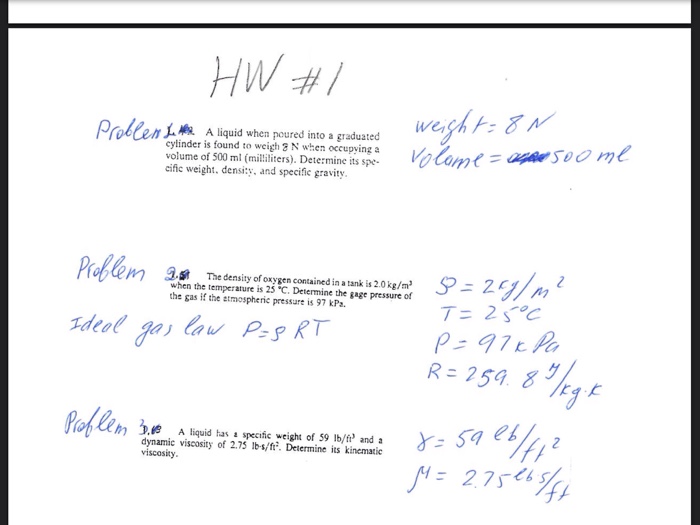 HW #1
Problem 1. A liquid when poured into a graduated
cylinder is found to weigh 8 N when occupying a
volume of 500 ml (milliliters). Determine its spe-
cific weight, density, and specific gravity.
weight = 8 N
Volome = 500 ml
Problem 2. The density of oxygen contained in a tank is 2.0 kg/m³
when the temperature is 25 °C. Determine the gage pressure of
the gas if the atmospheric pressure is 97 kPa.
Ideal gas law P=ρRT
ρ = 2 kg/m²
T = 25°C
P = 97 kPa
R = 259.8 J/kg·K
Problem 3. A liquid has a specific weight of 59 lb/ft³ and a
dynamic viscosity of 2.75 lb·s/ft². Determine its kinematic
viscosity.
γ = 59 lb/ft²
μ = 2.75 lb s/ft